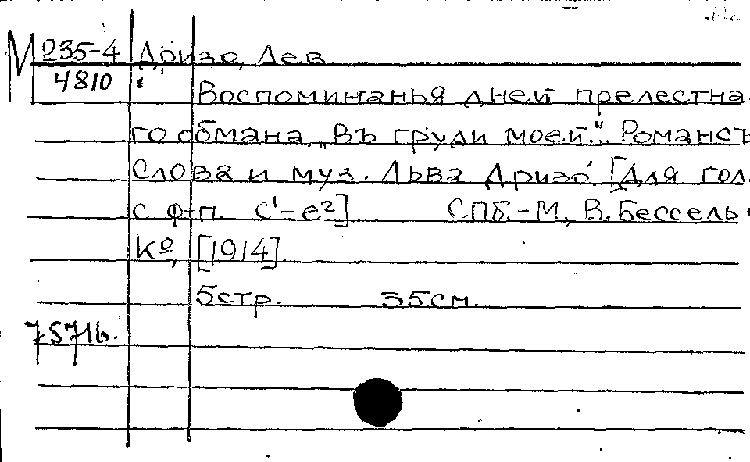 М 235-4 Дризо, Лев
4810
Воспоминанья дней прелестна-
го обмана „Въ груди моей". Романсъ
Слова и муз. Льва Дризо. [Для гол.
с ф-п. c¹-e²] СПб.-М., В. Бессель и
Кº, [1914].
5 стр. 35 см.
7571б.